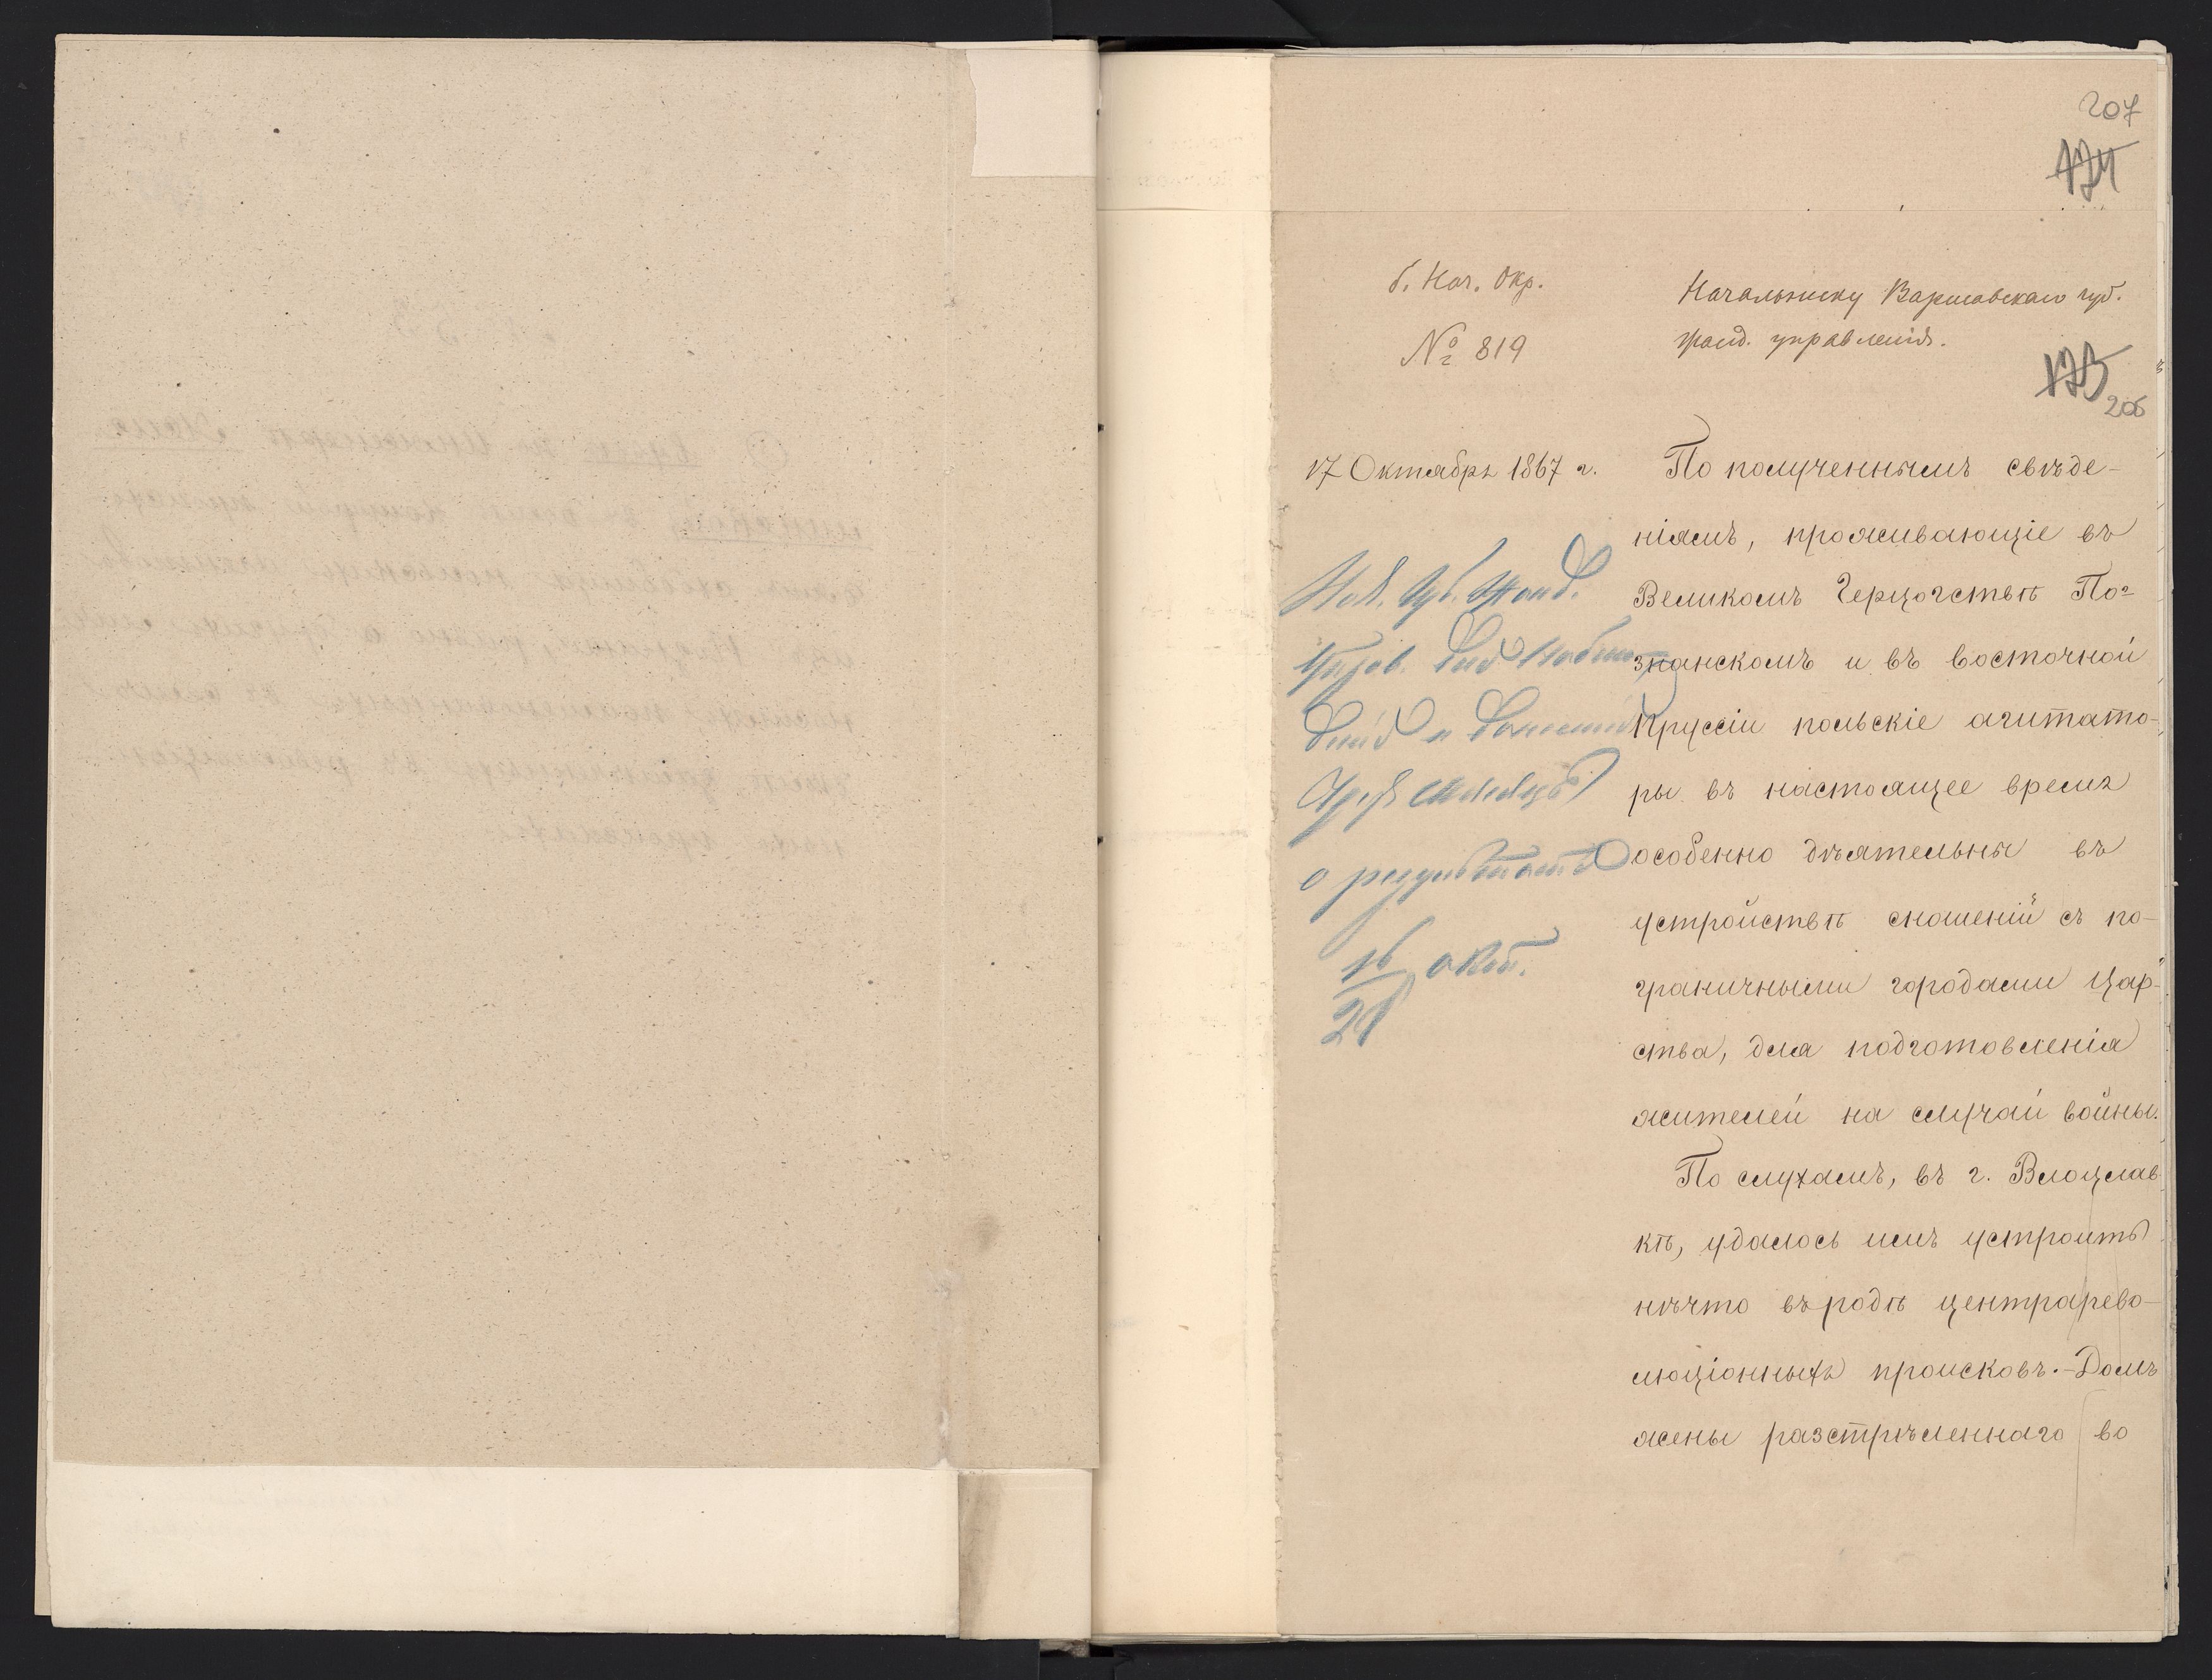 207
174
б. Нач. Окр.
№ 819
Начальнику Варшавскаго губ.
жанд. управленія.
175
206
17 Октября 1867 г.
По полученнымъ свѣде-
ніямъ, проживающіе въ
Великомъ Герцогствѣ По-
знанскомъ и въ восточной
Пруссіи польскіе агитато-
ры въ настоящее время
особенно дѣятельны въ
устройствѣ сношеній съ по-
граничными городами Цар-
ства, для подготовленія
жителей на случай войны.
По слухамъ, въ г. Влоцлав-
кѣ, удалось имъ устроить
нѣчто въ родѣ центра рево-
люціонныхъ происковъ.-Домъ
жены разстрѣленнаго во
Губ. Жанд.
о результатѣ
16 окт.